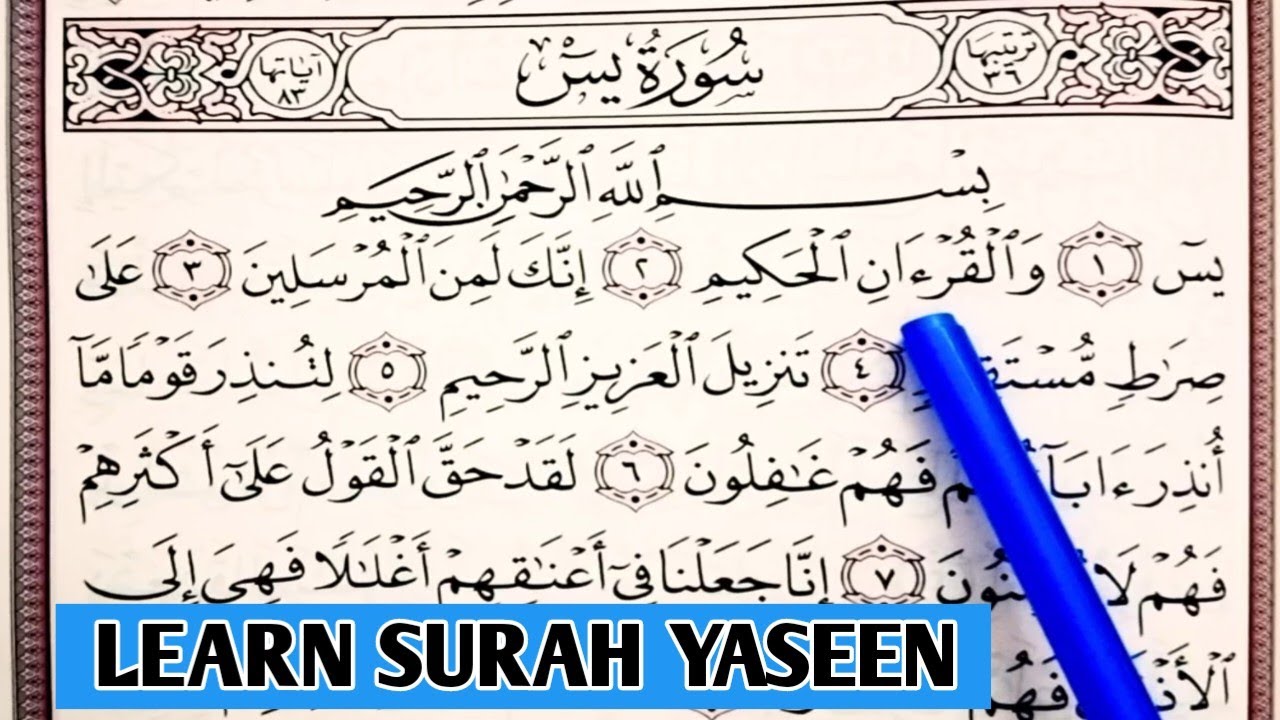 ترتيبها ٣٦
سُورَةُ يسٓ
آياتها ٨٣
بِسْمِ ٱللَّهِ ٱلرَّحْمَٰنِ ٱلرَّحِيمِ
يسٓ ١ وَٱلْقُرْءَانِ ٱلْحَكِيمِ ٢ إِنَّكَ لَمِنَ ٱلْمُرْسَلِينَ ٣ عَلَىٰ
صِرَٰطٍ ٤ تَنزِيلَ ٱلْعَزِيزِ ٱلرَّحِيمِ ٥ لِتُنذِرَ قَوْمًا مَّآ
أُنذِرَ فَهُمْ غَٰفِلُونَ ٦ لَقَدْ حَقَّ ٱلْقَوْلُ عَلَىٰٓ أَكْثَرِهِمْ
فَهُمْ لَا ٧ إِنَّا جَعَلْنَا فِىٓ أَعْنَٰقِهِمْ أَغْلَٰلًا فَهِىَ إِلَى
فَهُم
LEARN SURAH YASEEN